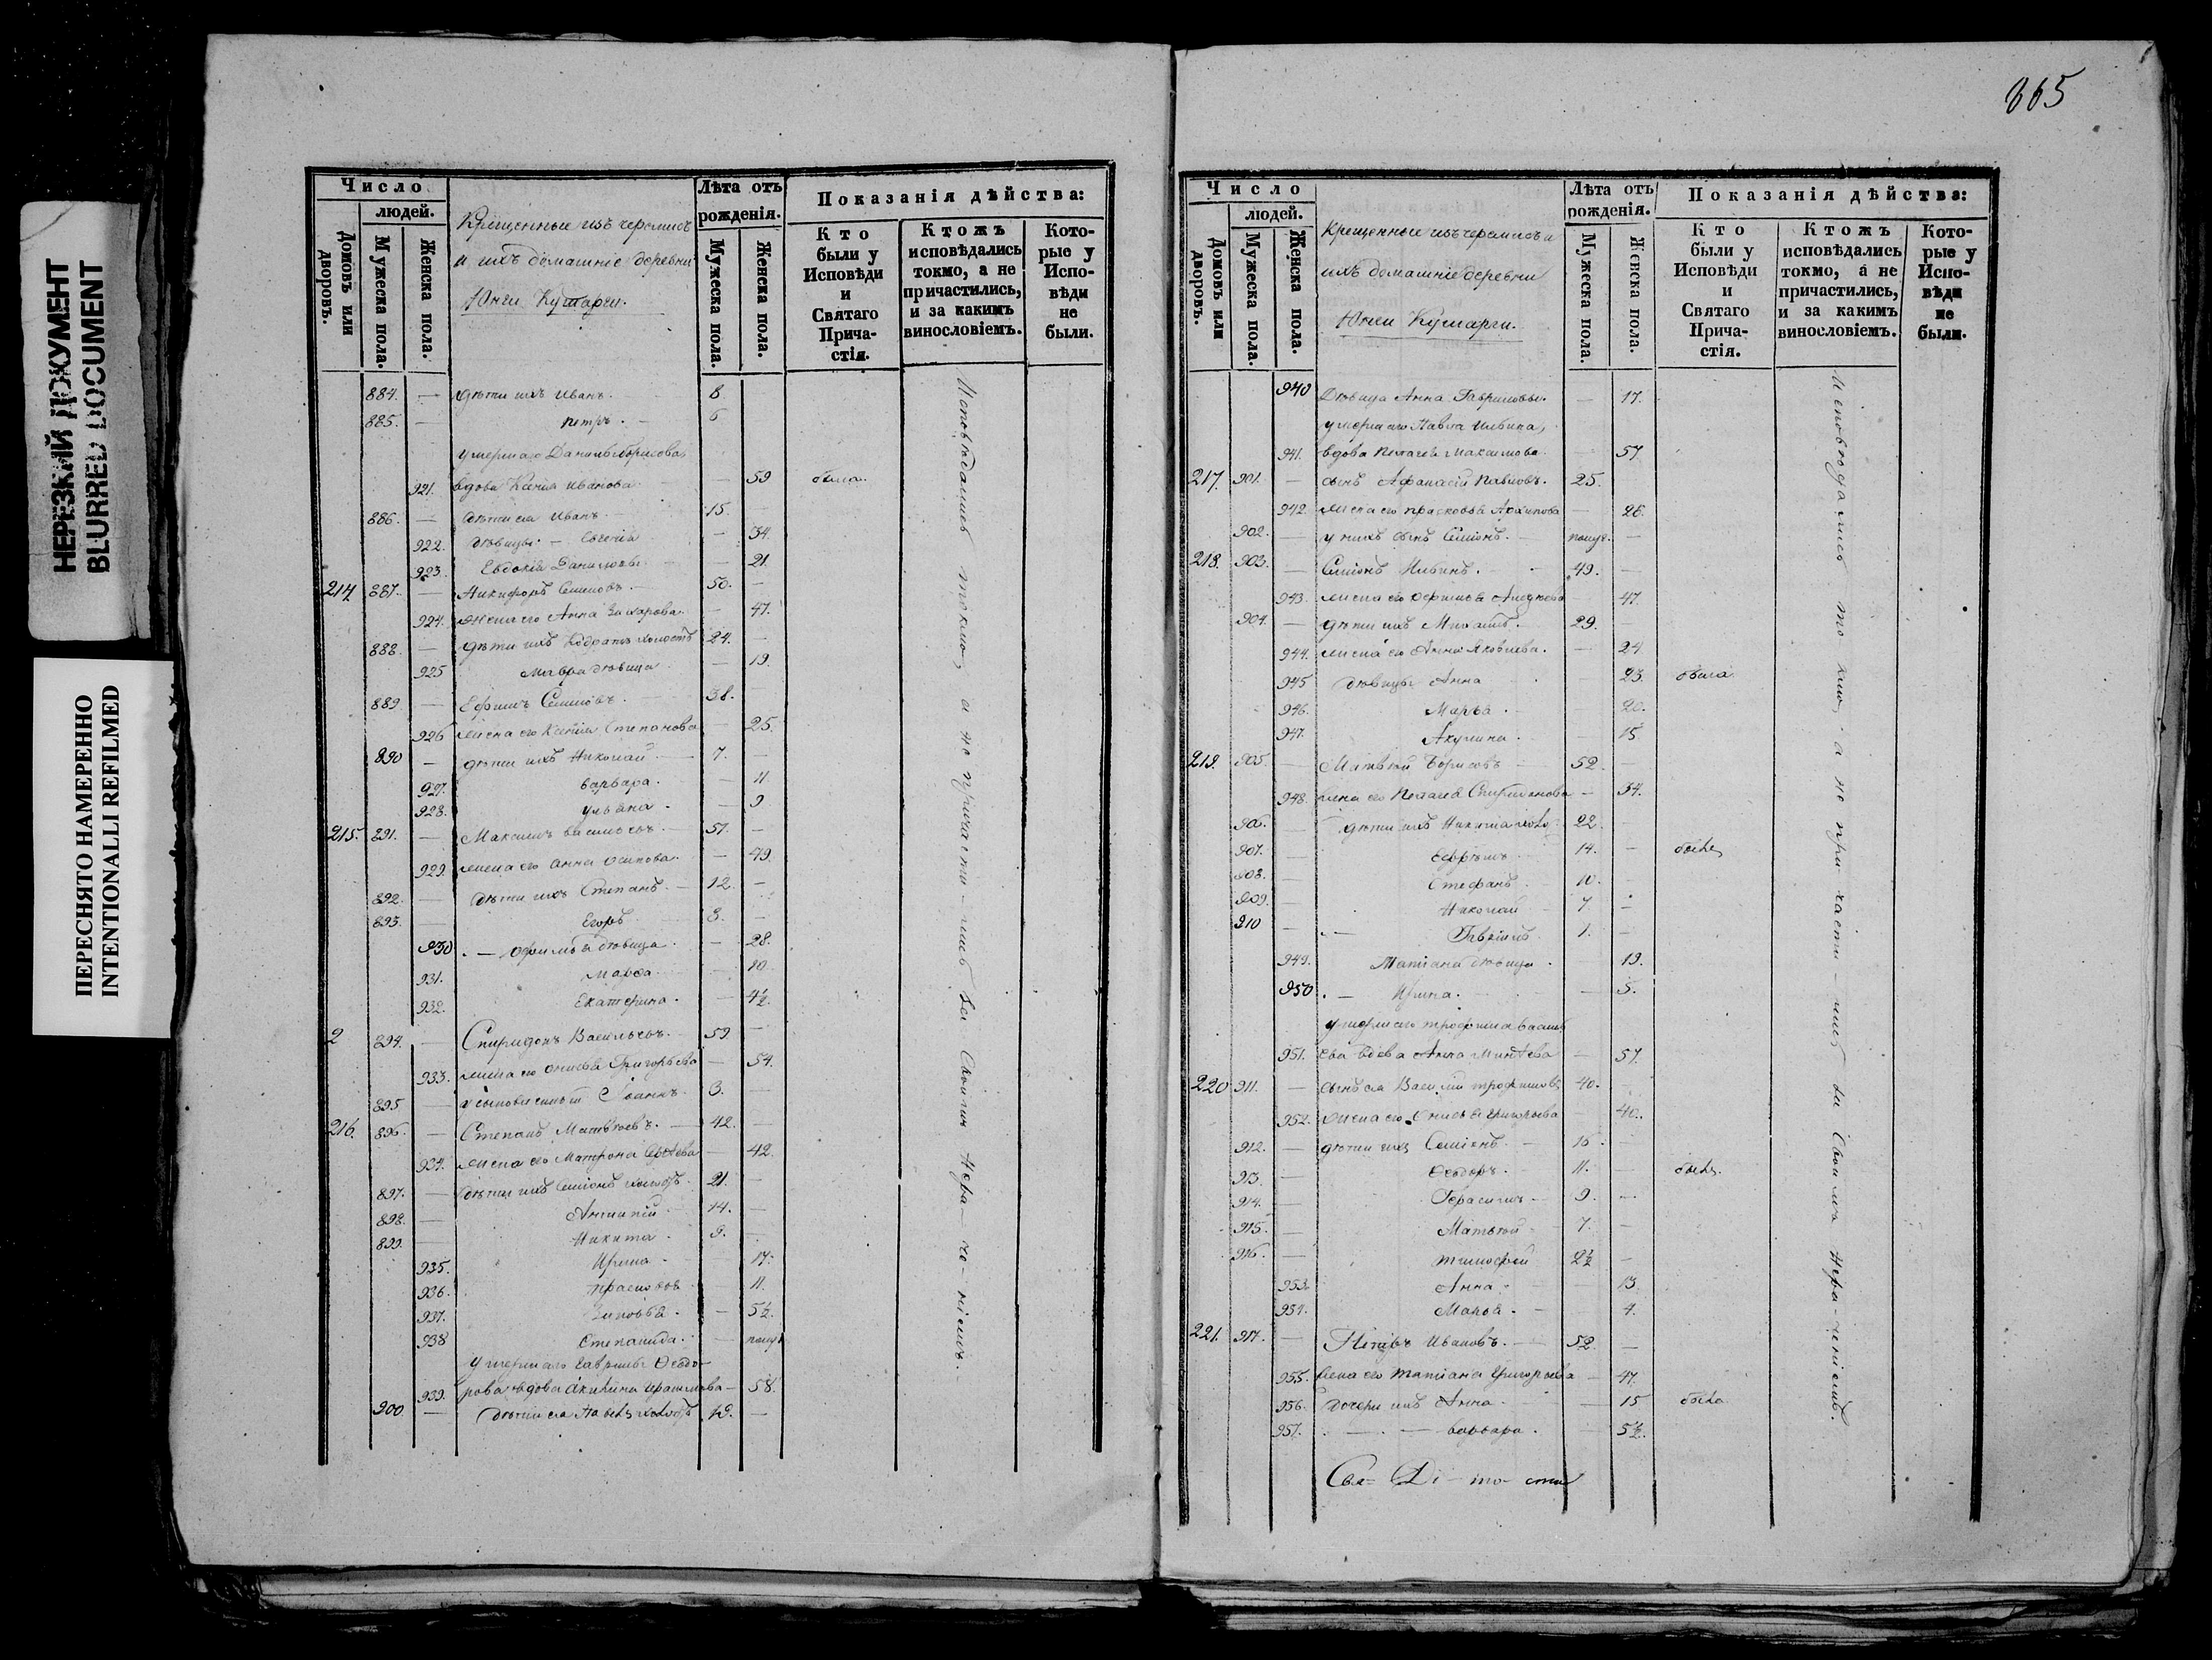 НЕРЕЗКИЙ ДОКУМЕНТ
BLURRED DOCUMENT
ПЕРЕСНЯТО НАМЕРЕННО
INTENTIONALLI REFILMED
Число
людей.
Домовъ или дворовъ.
Мужеска пола.
Женска пола.
Крещенные изъ черемисъ
и ихъ домашніе деревни
Юнги Кушарги.
Лѣта отъ рожденія.
Мужеска пола.
Женска пола.
Показанія дѣйства:
Кто были у Исповѣди и Святаго Прича-стія.
Ктожъ исповѣдались токмо, а не причастились, и за какимъ винословіемъ.
Кото-рые у Испо-вѣди не были.
884. — дѣти ихъ Иванъ. 8
885. — Петръ. 6
умершаго Данила Борисова
921. вдова Ксенія Иванова — 59 была.
886. — дѣти ея Иванъ 15.
922. дѣвицы — Евгенія — 34.
923. Евдокія Даниловы — 21.
214. 887. — Никифоръ Семеновъ. 50. —
924. жена его Анна Захарова — 47.
888. — дѣти ихъ Кодратъ холостъ 24. —
925 Мавра дѣвица — 19.
889 — Ефимъ Семеновъ. 38.
926 жена его Ксенія Степанова — 25.
890 — дѣти ихъ Николай — 7. —
927. варвара. — 11
928. ульяна — 9
215. 891. — Максимъ Васильевъ. — 57. —
929. жена его Анна Осипова. — 49.
892. — дѣти ихъ Степанъ. — 12. —
893. — Егоръ 3. —
930 . — Офимья дѣвица. — 28.
931. Марфа. — 10.
932. Екатерина. — 4½.
2 894. — Спиридонъ Васильевъ. 59. —
933. жена его Григорьева — 54.
895 — Іоаннъ. 3. —
216. 896. — Степанъ Матвѣевъ. — 42. —
934. жена его Матрона — 42.
897. — дѣти ихъ Семіонъ холостъ. 21. —
898. — Антипій 14. —
899. — Никита. 9. —
935. Ирина — 17.
936. Прасковья — 11.
937. Зиновья. — 5½.
938 Степанида. — полуг.
умершаго Гаврила Ѳеодо-
939. рова вдова Акилина — 58.
900 — дѣти ея Павелъ холостъ 19. —
Исповѣдались токмо, а не причасти-лись за своимъ нера-че-ніемъ.
865
Число
людей.
Домовъ или дворовъ.
Мужеска пола.
Женска пола.
Крещенные изъ черемисъ и
ихъ домашніе деревни
Юнги Кушарги.
Лѣта отъ рожденія.
Мужеска пола.
Женска пола.
Показанія дѣйства:
Кто были у Исповѣди и Святаго Прича-стія.
Ктожъ исповѣдались токмо, а не причастились, и за какимъ винословіемъ.
Кото-рые у Испо-вѣди не были.
940 Дѣвица Анна Гаврилова. — 17.
умершаго Павла Ильина,
941. вдова Пелагея Максимова — 57
217. 901. — сынъ Афанасій Павловъ. 25.
942. жена его Прасковья Архипова — 26.
902. — у нихъ сынъ Семіонъ. — полуг. —
218. 903. — Семіонъ Ильинъ. — 49. —
943. жена его Офимья 47.
904. — дѣти ихъ 29. —
944. жена его Анна Яковлева. — 24
945 дѣвицы Анна — 23. была
946. Марья. — 20.
947. Акулина. — 15
219. 905. — Матвѣй Борисовъ — 52. —
948. жена его Пелагея Спиридонова — 54.
906. — дѣти ихъ Никита 22. —
907. — Ефремъ 14. — былъ
908. — Стефанъ 10. —
909. — Николай 7 —
910 — Гаврилъ. 1. —
949. Татіана дѣвица. — 19.
950 . — Ирина. — 5.
умершаго Трофима Василь
951. ева вдова Анна — 57.
220 911. — сынъ ея Василій Трофимовъ 40. —
952. жена его Григорьева — 40.
912. — дѣти ихъ Семіонъ. — 16. —
913. — Ѳеодоръ. — 11. — былъ.
914. — Герасимъ — 9. —
915. — Матвѣй — 7. —
916. — Тимофей 2½ —
953. Анна — 13.
954. Марья. — 4.
221. 917. — Петръ Ивановъ. — 52. —
955. жена его Татіана Григорьева — 47.
956. дочери ихъ Анна. — 15 была
957. — варвара. — 5½.
Исповѣдались токмо, а не при-части-лись за своимъ нера-ченіемъ.
Свя-